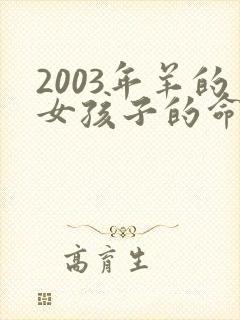 2003年羊的
女孩子的命
高育生